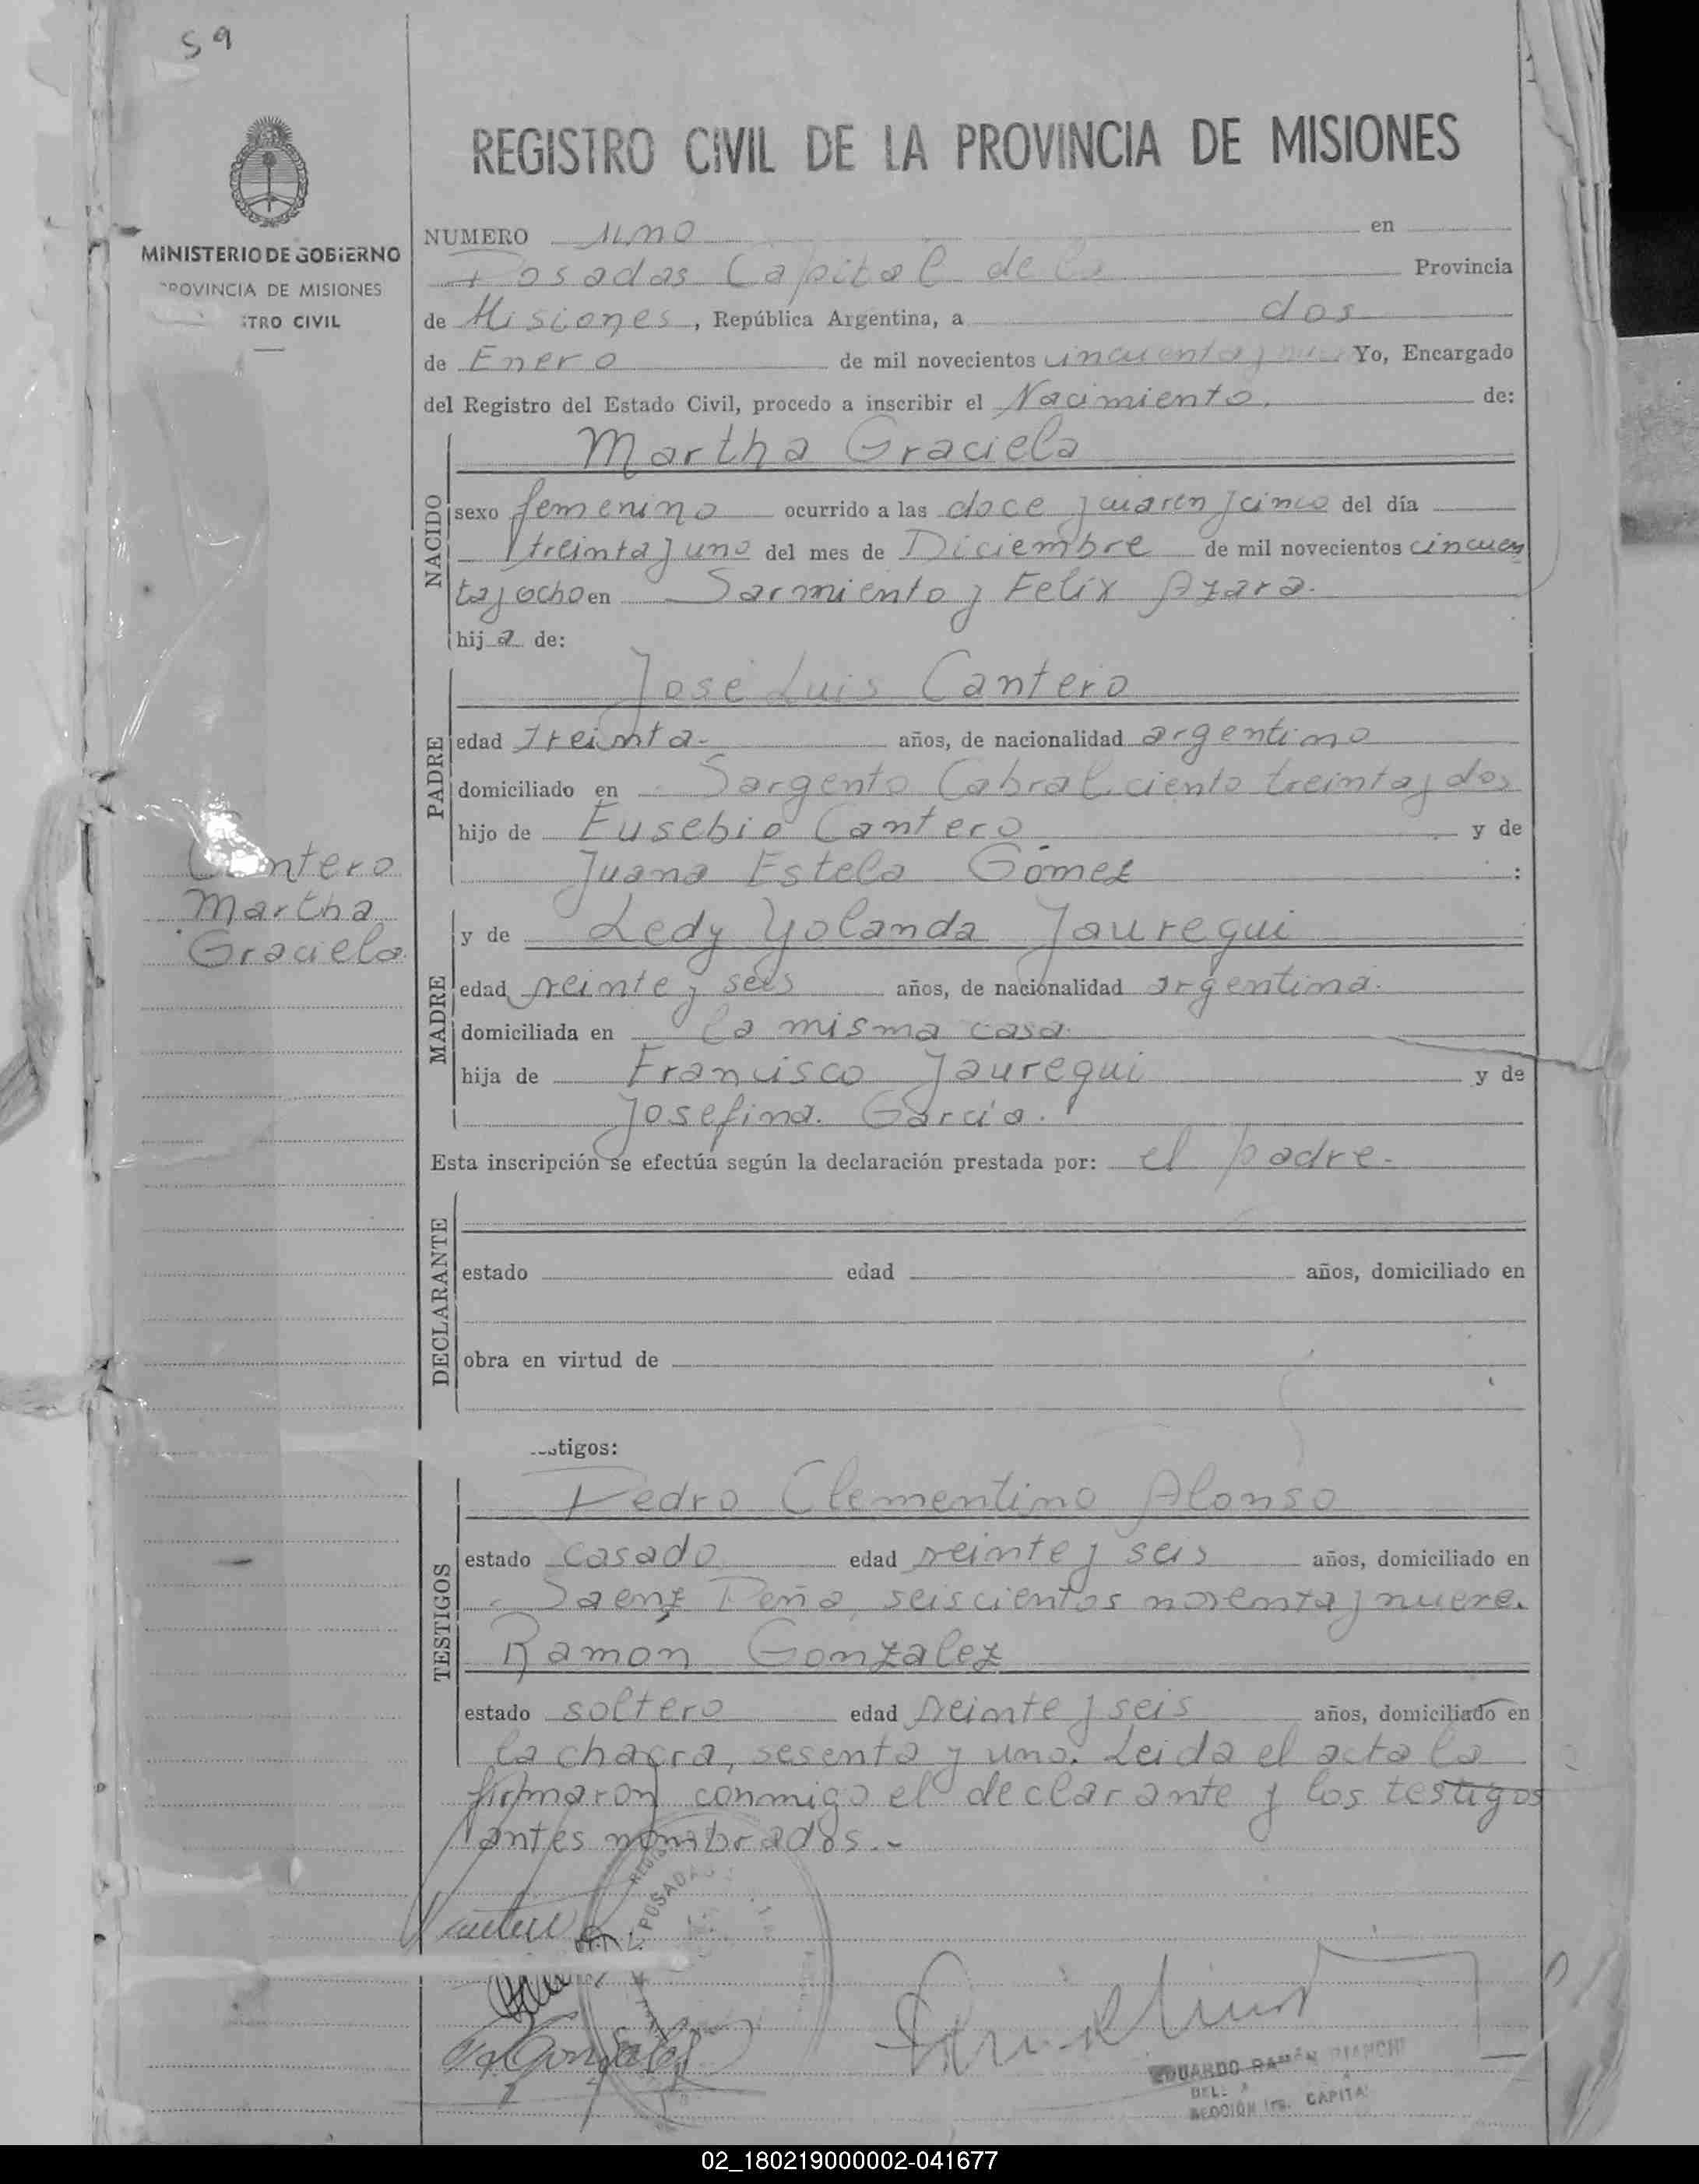 59
REGISTRO CIVIL DE LA PROVINCIA DE MISIONES
MINISTERIO DE GOBIERNO
PROVINCIA DE MISIONES
STRO CIVIL
NUMERO uno en
Posadas Capital de la Provincia
de Misiones, República Argentina, a dos
de Enero de mil novecientos cincuenta y Yo, Encargado
del Registro del Estado Civil, procedo a inscribir el Nacimiento. de:
NACIDO
Martha Graciela
sexo femenino ocurrido a las doce y cuaren y cinco del día
treinta y uno del mes de Diciembre de mil novecientos cincuen
ta y ocho en Sarmiento y Felix Azara.
hija de:
PADRE
José Luis Cantero
edad treinta- años, de nacionalidad argentino
domiciliado en Sargento Cabral ciento treinta y dos
hijo de Eusebio Cantero y de
Juana Estela Gómez :
Cantero
Martha
Graciela
MADRE
y de Ledy Yolanda Jauregui
edad veinte y seis años, de nacionalidad argentina.
domiciliada en la misma casa.
hija de Francisco Jauregui y de
Josefina. García.
Esta inscripción se efectúa según la declaración prestada por: el padre.-
DECLARANTE
estado edad años, domiciliado en
obra en virtud de
stigos:
TESTIGOS
Pedro Clementino Alonso
estado casado edad veinte y seis años, domiciliado en
Saenz Peña, seiscientos noventa y nueve.
Ramón Gonzalez
estado soltero edad veinte y seis años, domiciliado en
la chacra, sesenta y uno. Leida el acta la
firmaron conmigo el declarante y los testigos
antes nombrados.-
POSADAS
EDUARDO RAMÓN BIANCHI
SECCIÓN 1ra. CAPITAL
02_180219000002-041677